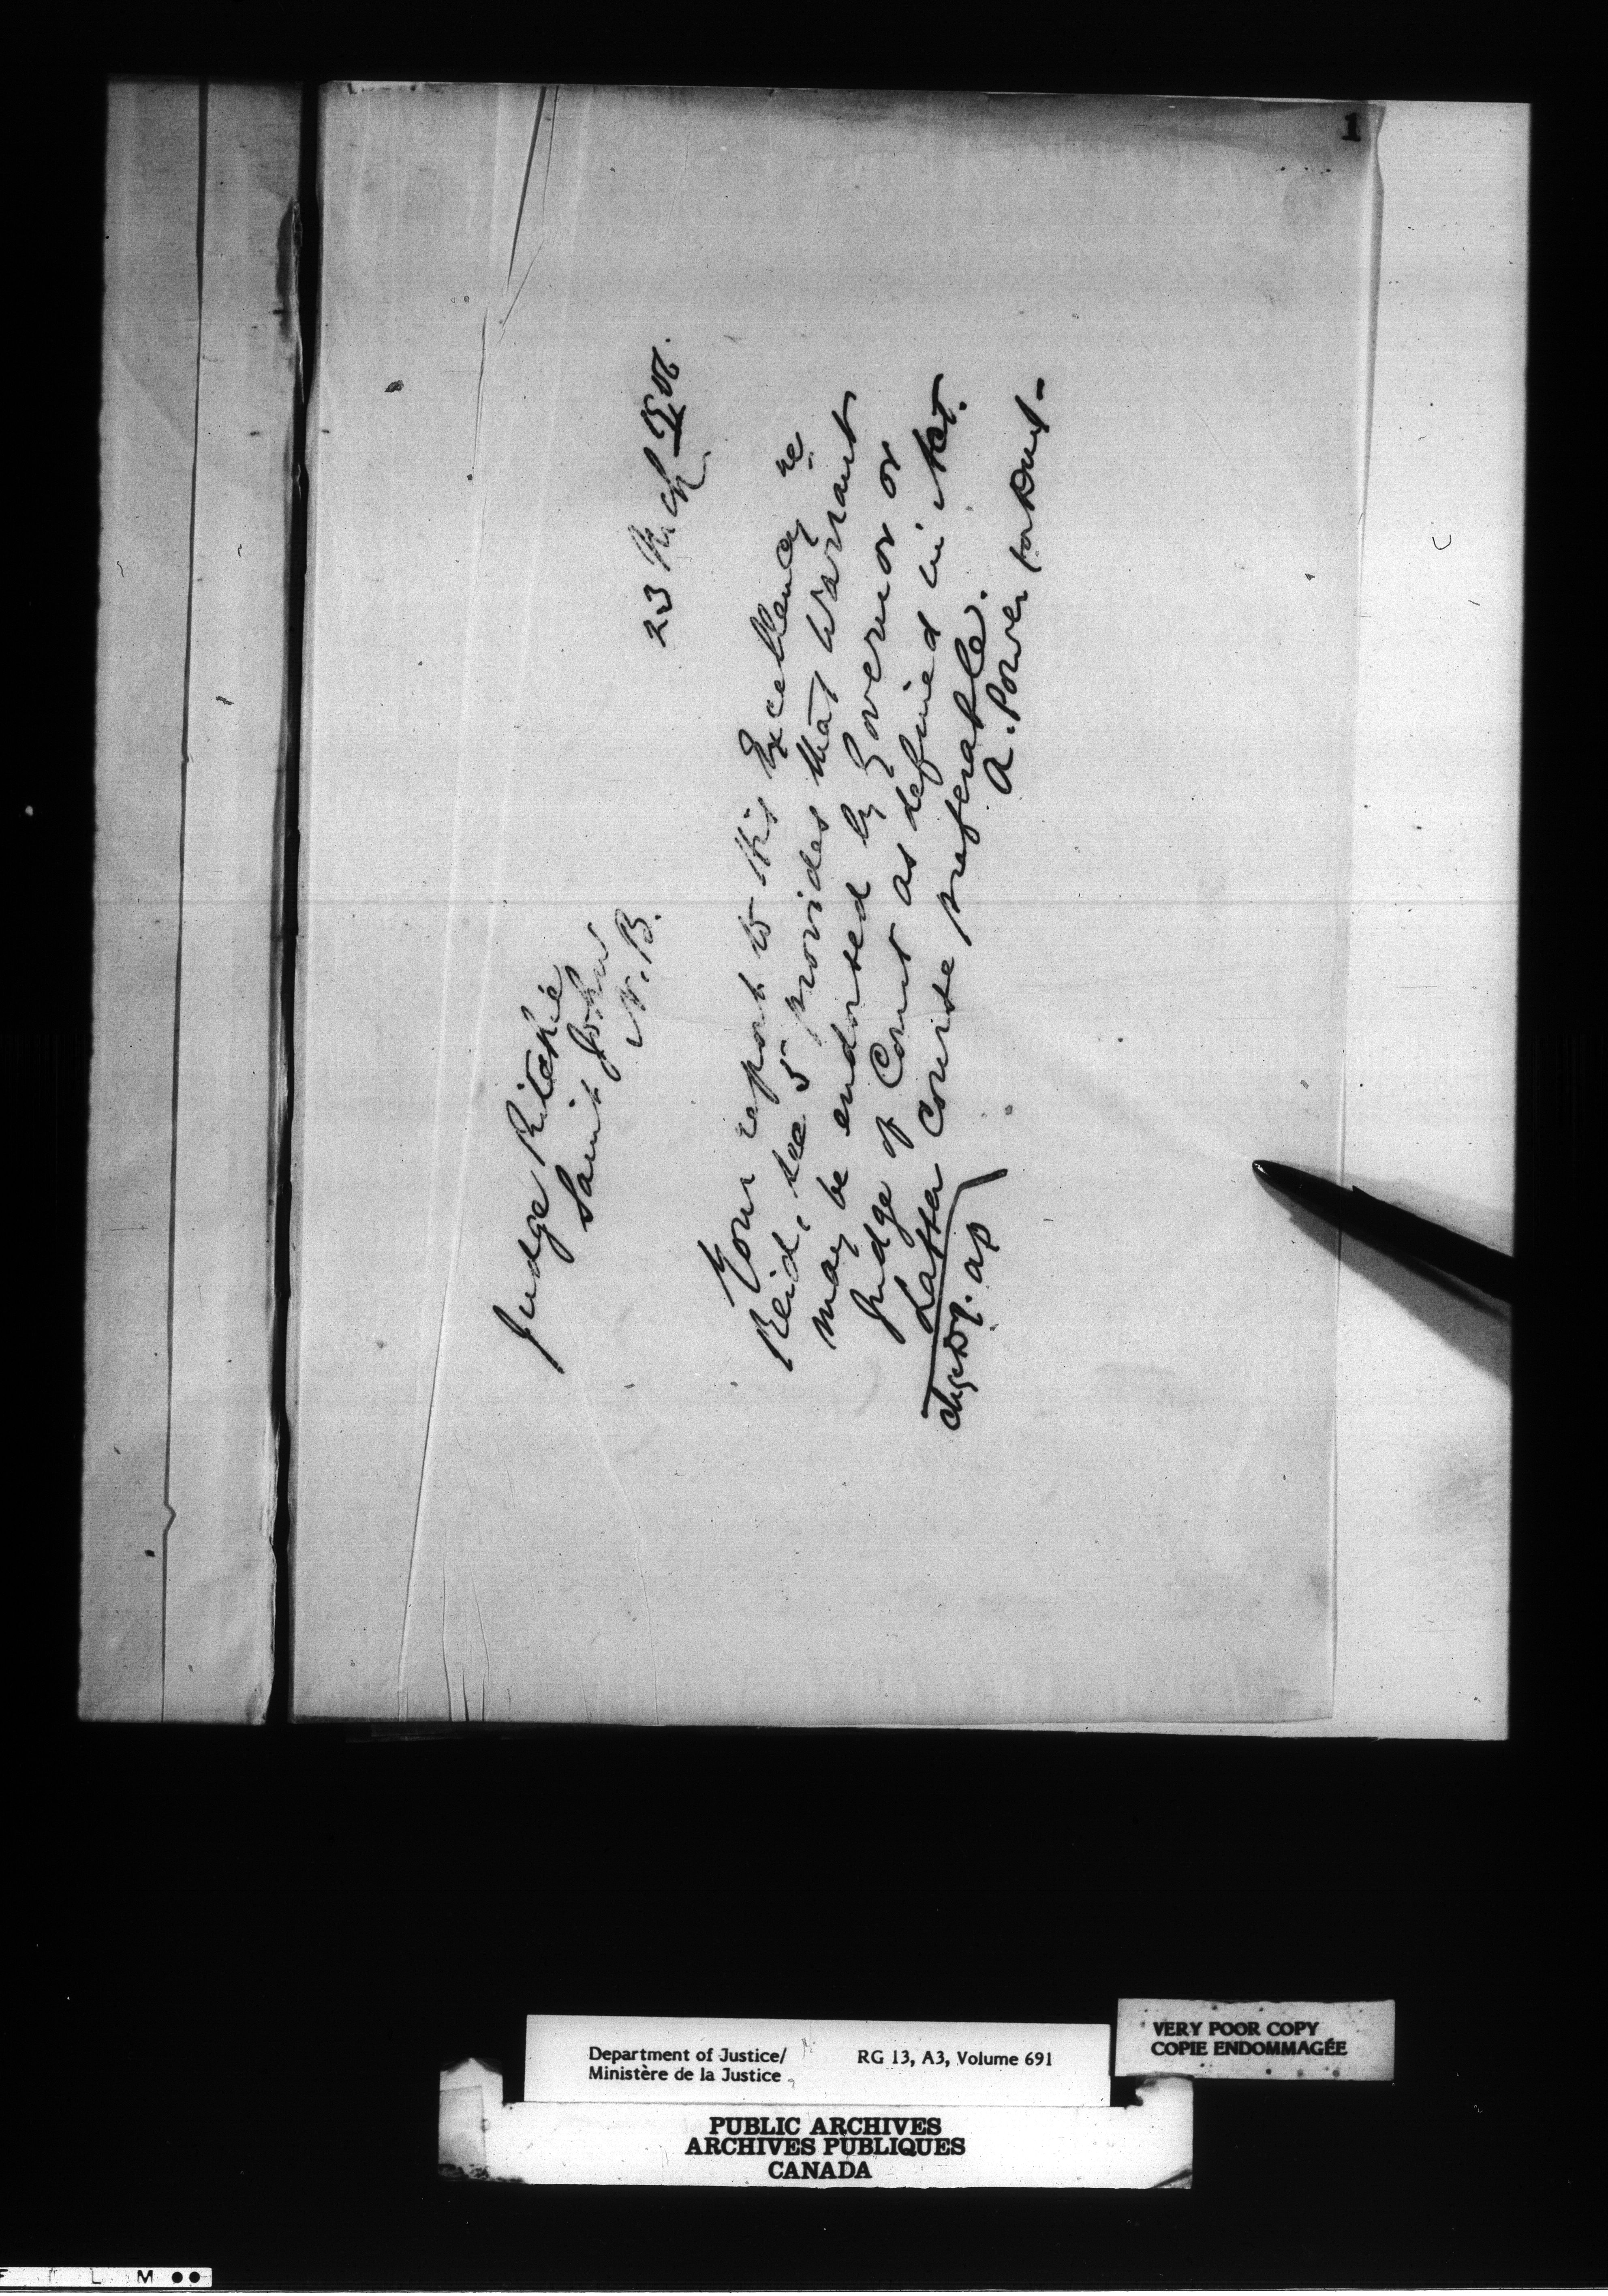 1
23 Mch
Judge Ritchie
Saint John
N.B.
Your report to His Excellency re
Reid, sec 5 provides that warrant
may be endorsed by Governor or
Judge of Court as defined in Act.
Latter course preferable.
A. Power for
AP
VERY POOR COPY
COPIE ENDOMMAGÉE
Department of Justice/ RG 13, A3, Volume 691
Ministère de la Justice
PUBLIC ARCHIVES
ARCHIVES PUBLIQUES
CANADA
L M